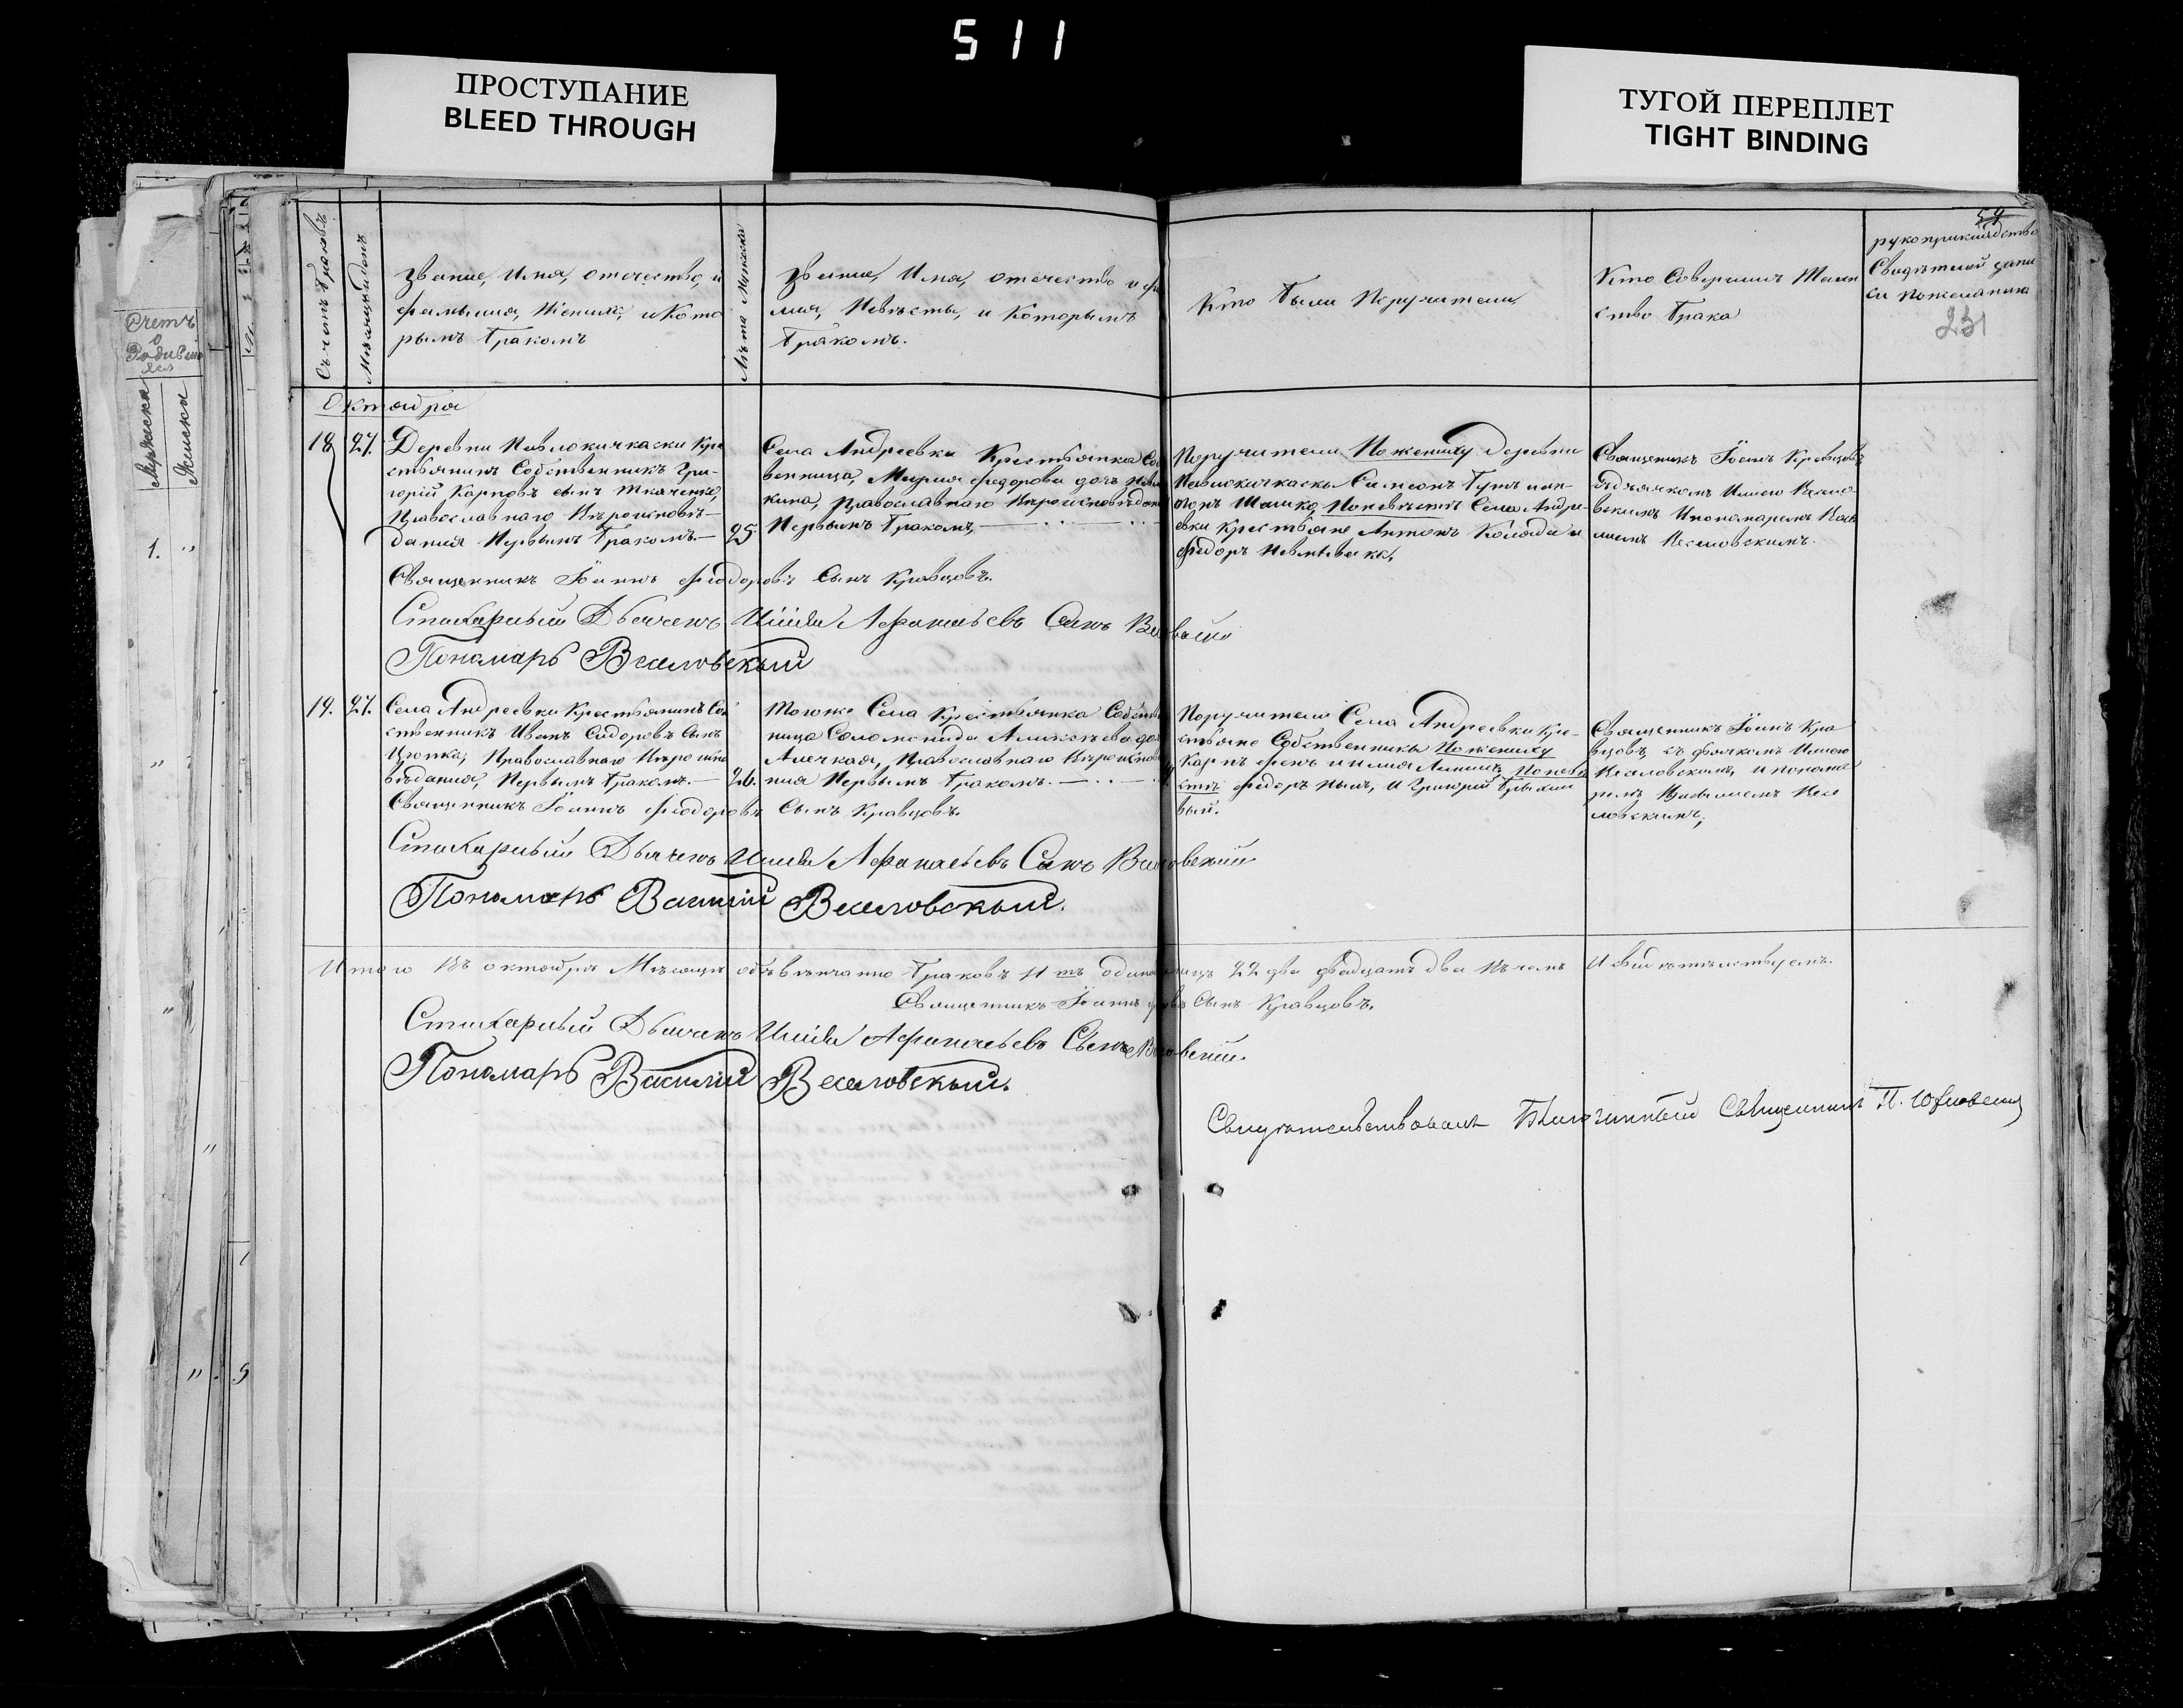 511
ПРОСТУПАНИЕ
BLEED THROUGH
ТУГОЙ ПЕРЕПЛЕТ
TIGHT BINDING
Счетъ
о
Родивших
ся
Мужеска
Женска
1. "
Съчетъ браковъ
Мѣсяцъ и день
Званіе, Имя, отечество, и
фамилия, Жениха, и Кото
рымъ бракомъ
Лѣта Мужеска
Званіе, Имя, отечество и фа
мия, Невѣсты, и Которымъ
бракомъ.
Кто были Поручители
Кто Совершилъ Таин
ство брака
59
рукоприкладство
Свидѣтелей запи
си пожеланию
231
Октября
18 27.
Деревни Павлокичкаски Кре
стьянинъ Собственникъ Гри-
горій Карповъ сынъ Ткаченко,
Православнаго Вѣроисповѣ-
данія Первымъ бракомъ.— 25
Села Андреевки Крестьянка Соб
венница, Мария Федорова дочь
кина, Православнаго Вѣроисповѣдан
Первымъ бракомъ,
Поручители По жениху деревни
Павлокичкаскы Симеонъ
Шашко По невѣстѣ Села Андре-
евки крестьяне Антонъ Коляда и
Федоръ
Священикъ Іоанъ Кравцовъ
съ дьячкомъ Илиею Весело-
вскимъ и пономаремъ Васи
лиемъ Веселовскимъ.
Священникъ Іоаннъ Феодоровъ Сынъ Кравцовъ.
Стихарный Дьячекъ Илія Афанасьевъ Сынъ
Пономарь Веселовскый
19. 27.
Села Андреевки Крестьянинъ Соб
ственникъ Иванъ Сидоровъ Сынъ
Православнаго Вѣроиспо
вѣданія, Первымъ бракомъ.— 26.
Тогоже Села Крестьянка Собств
ница Соломонида Алексѣева до
Православнаго Вѣроиспов
нія Первымъ бракомъ.
Поручители Села Андреевки Кре-
стьяне Собственники По жениху
Карпъ По невѣ
стѣ Федоръ и Григорій
вый.
Священникъ Іоанъ Кра
вцовъ, съ дьячкомъ Илиею
Веселовскимъ, и понома
ремъ Василиемъ Весе
ловскимъ,
Священникъ Іоаннъ Феодоровъ Сынъ Кравцовъ.
Стихарный Дьячекъ Илія Афанасьевъ Сынъ Веселовскій
Пономарь Василій Веселовскый.
Итого Въ октябрѣ Мѣсяцѣ обвѣнчанно браковъ 11 тъ 22 два двадцать два Въ чемъ И свидѣтельствуемъ.
Священникъ Іоаннъ Сынъ Кравцовъ.
Стихарный Дьячекъ Илія Афанасьевъ Сынъ Веселовскій.
Пономарь Василій Веселовскый.
Свидѣтельствовалъ Благочинный Священникъ П.